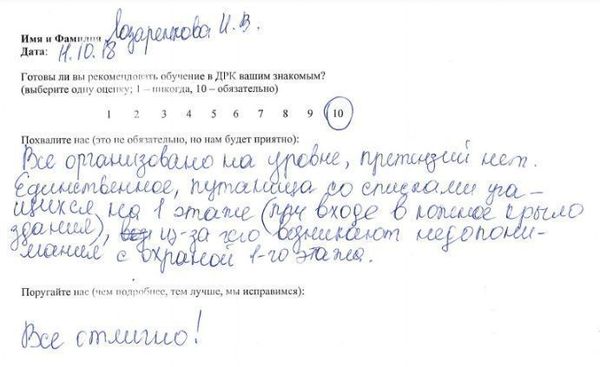 Имя и Фамилия Лазаренкова И.В.
Дата: 11.10.18
Готовы ли вы рекомендовать обучение в ДРК вашим знакомым?
(выберите одну оценку; 1 – никогда, 10 – обязательно)
1 2 3 4 5 6 7 8 9 10
Похвалите нас (это не обязательно, но нам будет приятно):
Все организовано на уровне, претнзий нет.
Единственное, путаница со списками уча-
щихся на 1 этаже (при входе в южное крыло
здания), из-за чго возникают недопони-
мания с охраной 1-го этажа.
Поругайте нас (чем подробнее, тем лучше, мы исправимся):
Все отлично!